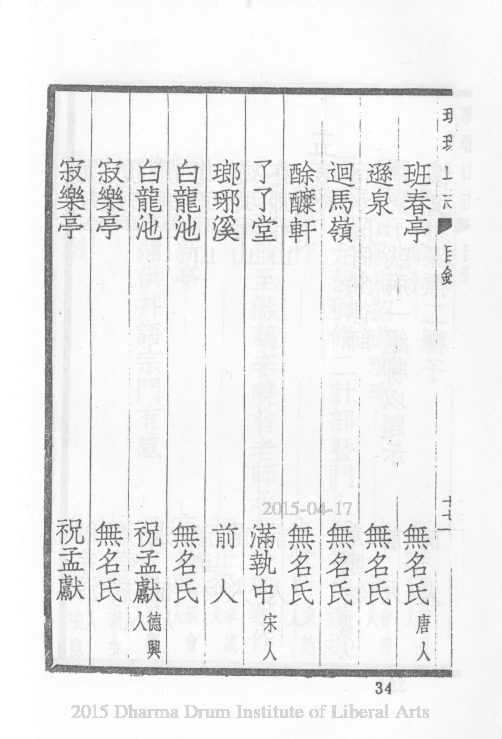 瑯琊山志 目錄 十七
班春亭 無名氏 唐人
遜泉 無名氏
迴馬嶺 無名氏
酴醾軒 無名氏
了了堂 滿執中 宋人
瑯琊溪 前人
白龍池 無名氏
白龍池 祝孟獻 德興人
寂樂亭 無名氏
寂樂亭 祝孟獻
2015-04-17
34
2015 Dharma Drum Institute of Liberal Arts